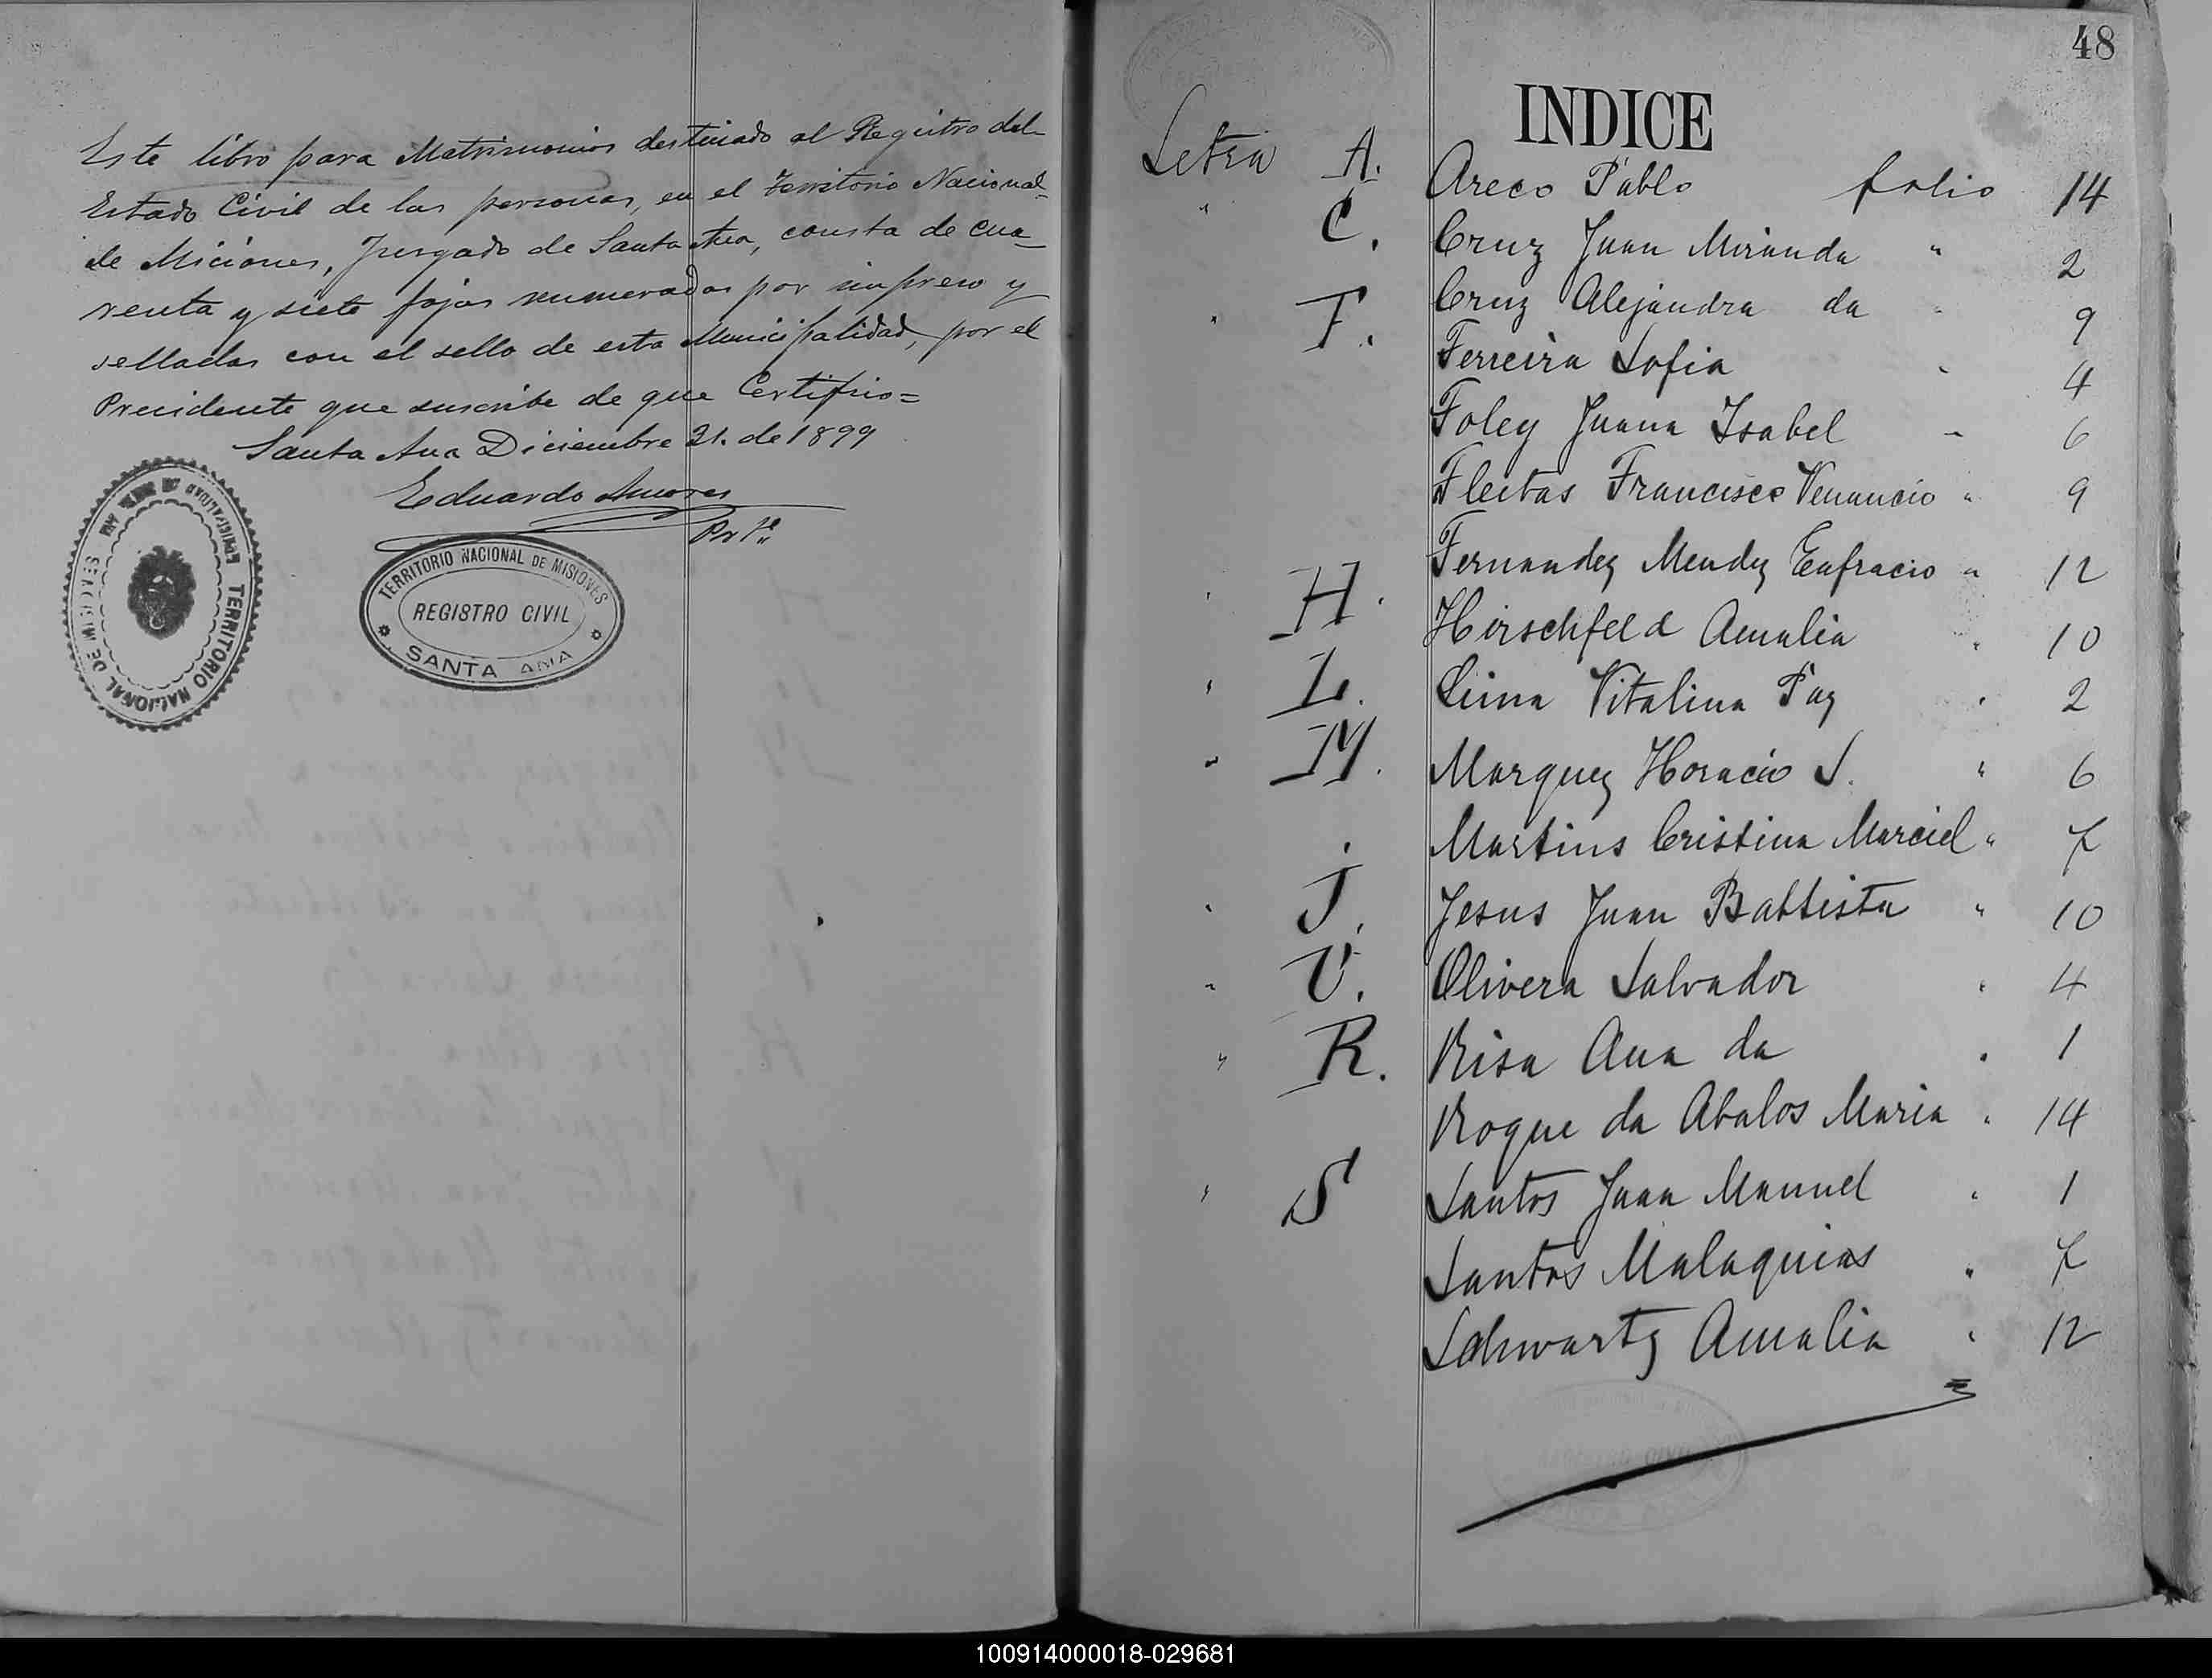 Este libro para Matrimonios destinado al Registro del
Estado Civil de las personas, en el Territorio Nacional
de Miciones, Jusgado de Santa Ana, consta de cua-
renta y siete fojas numeradas por impreso y
selladas con el sello de esta Municipalidad, por el
Precidente que suscribe de que Certifico=
Santa Ana Diciembre 31. de 1899
Eduardo Amores
TERRITORIO NACIONAL DE MISIONES
REGISTRO CIVIL
SANTA ANA
TERRITORIO NACIONAL DE MISIONES
48
INDICE
Letra A. Areco Pablo folio 14
" C. Cruz Juan Miranda " 2
Cruz Alejandra da " 9
" F. Ferreira Sofia " 4
Foley Juana Isabel " 6
Fleitas Francisco Venancio " 9
Fernandez Mendez Eufracio " 12
" H. Hirschfeld Amalia " 10
" L. Lima Vitalina Paz " 2
" M. Marquez Horacio S. " 6
Martins Cristina Marciel " 7
" J. Jesus Juan Battista " 10
" O. Olivera Salvador " 4
" R. Risa Ana da " 1
Roque da Abalos Maria " 14
" S Santos Juan Manuel " 1
Santos Malaquias " 7
Schwartz Amalia " 12
100914000018-029681